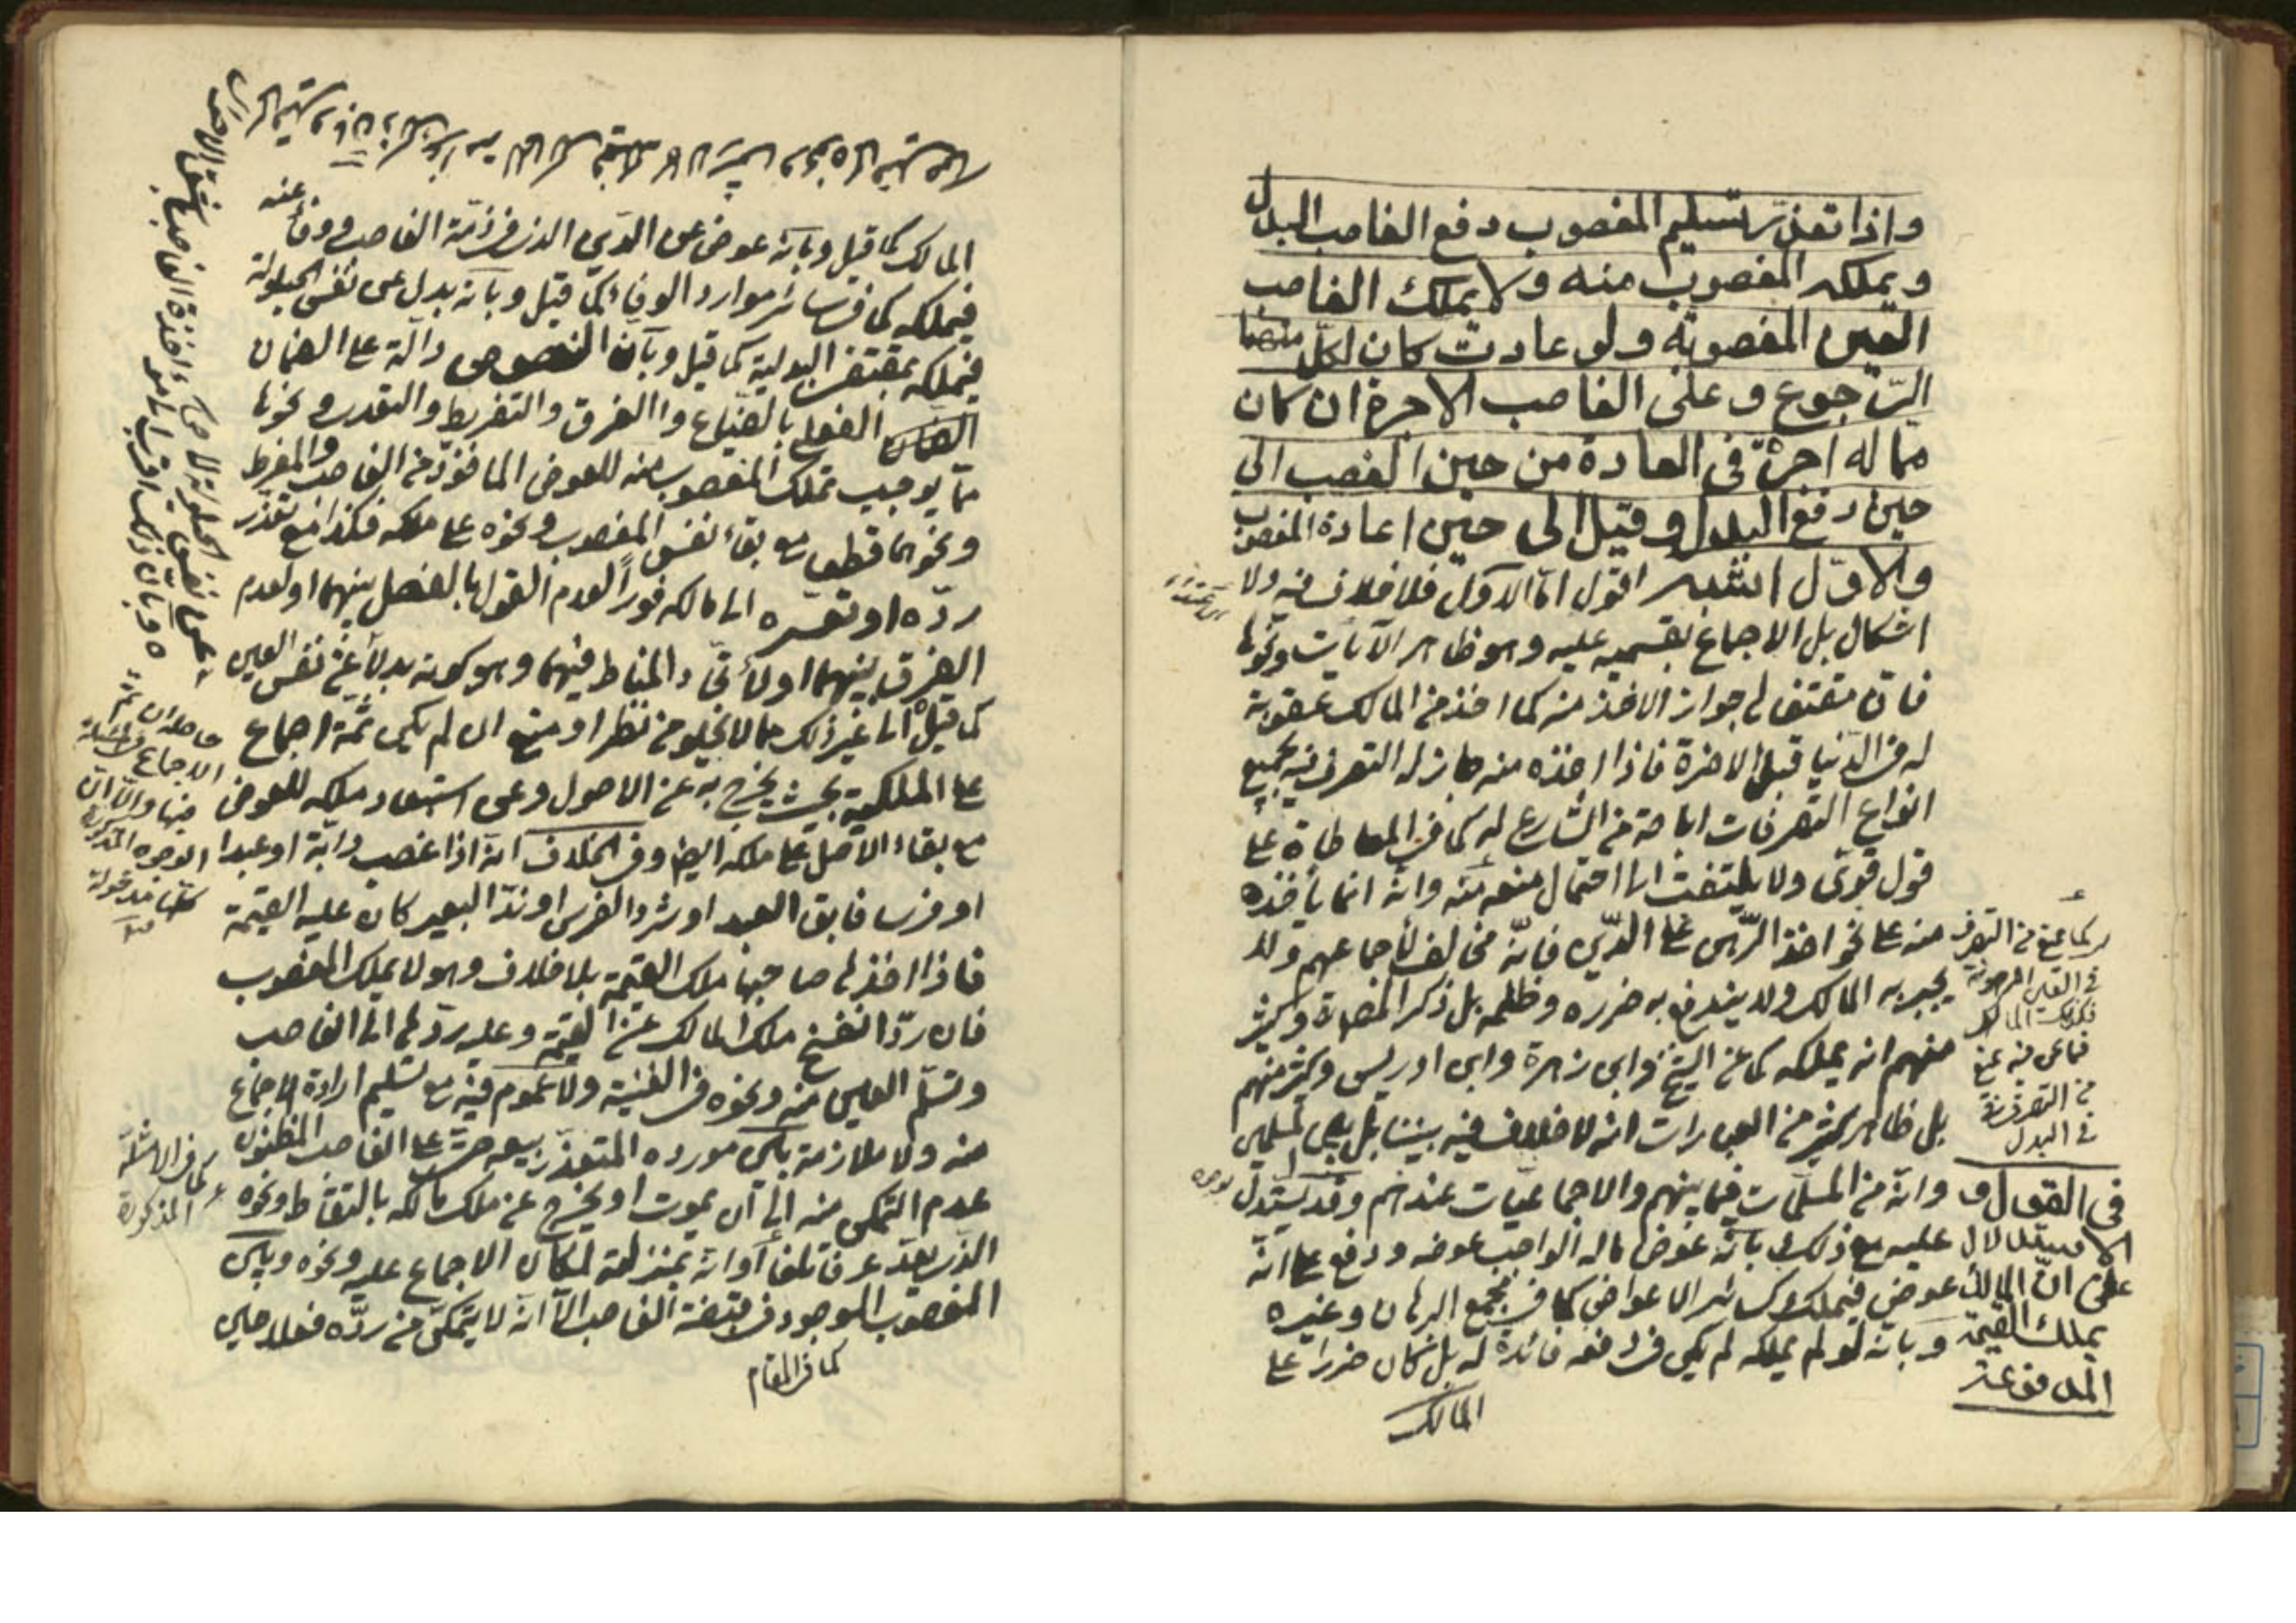 واذا تعذّر تسليم المغصوب دفع الغاصب البدل
ويملكه المغصوب منه ولا يملك الغاصب
العين المغصوبة ولو عادت كان لكلّ منهما
الرّجوع وعلى الغاصب الاجرة ان كان
مما له اجرة فى العادة من حين الغصب الى
حين دفع البدل وقيل الى حين اعادة المغصوب
والاوّل اشبه اقول امّا الاوّل فلا خلاف فيه ولا
اشكال بل الاجماع بقسميه عليه وهو ظاهر الآيات ونحوها
فان مقتضاها جواز الاخذ منه كما اخذ من المالك عقوبة
له فى الدّنيا قبل الاخرة فاذا اخذه منه جاز له التصرف فيه بجميع
انواع التصرفات اباحة من الشّارع له كما فى المعاطاة على
قول قوىّ ولا يلتفت الى احتمال منعه منه وانّه انما يأخذه
منه على نحو اخذ الرّهن على الدّين فانّه مخالف لاجماعهم ولا
يجبر به المالك ولا يندفع به ضرره وظلمه بل ذكر المض وكثير
منهم انه يملكه كما عن الشيخ وابن زهرة وابن ادريس وكثير منهم
بل ظاهر كثير من العبارات انه لا خلاف فيه بيننا بل بين المسلمين
وانّه من المسلّمات فيما بينهم والاجماعيّات عندهم وقد يستدل
عليه مع ذلك بانّه عوض ماله الواجب عوضه ودفع على انّه
عوض فيملك كسائر الاعواض كما فى مجمع البرهان وغيره
وبانّه لو لم يملكه لم يكن فى دفعه فائدة له بل كان ضررا على
المالك
كما يمنع من التصرف
فى العين المرهونة
فكذلك المالك
فيما نحن فيه يمنع
من التصرف
فى البدل
فى القول و
الاستدلال
على انّ المالك
يملك القيمة
المدفوعة
المالك كما قيل وبانّه عوض عن الدّين الذى فى ذمّة الغاصب ووفاء عنه
فيملكه كما فى سائر موارد الوفاء كما قيل وبانّه بدل عن نفس الحيلولة
فيملكه بمقتضى البدلية كما قيل وبانّ النصوص دالّة على الضمان
الضمان الفعلى بالضياع والغرق والتفريط والتعدى ونحوها
ممّا يوجب تملك المغصوب منه للعوض المأخوذ من الغاصب والمفرط
ونحوهما قطعا مع بقاء نفس المغصوب ونحوه على ملكه فكذا مع تعذّر
ردّه او تعسّره الى مالكه فورا لعدم القول بالفصل بينهما او لعدم
الفرق بينهما او لاتّحاد المناط فيهما وهو كونه بدلا عن نفس العين
كما قيل الى غير ذلك مما لا يخلو من نظر او منع ان لم يكن ثمّة اجماع
على الملكية بحيث يخرج به عن الاصول وعن استبعاد ملكه للعوض
مع بقاء الاصل على ملكه ايضا وفى الخلاف انه اذا غصب دابّة او عبدا
او فرسا فابق العبد او شرد الفرس او ندّ البعير كان عليه القيمة
فاذا اخذها صاحبها ملك القيمة بلا خلاف وهو لا يملك المغصوب
فان ردّ انفسخ ملك المالك عن القيمة وعليه ردّها الى الغاصب
وتسلّم العين منه ونحوه فى الغنية ولا عموم فيه مع تسليم ارادة الاجماع
منه ولا ملازمة بل مورده المتعذّر بيعه حتّى على الغاصب المظنون
عدم التمكن منه الى ان يموت او يخرج عن ملك مالكه بالتقاط ونحوه
الذى يعدّ عرفا تلفا او انه بمنزلته لمكان الاجماع عليه ونحوه وبين
المغصوب الموجود فى قبضة الغاصب الّا انه لا يتمكّن من ردّه فعلا حين
كما فى المقام
حاصله ان ثمّ
الاجماع فى المسألة
فبها والّا انّ
الوجوه المذكورة
كلّها مدخولة
منه
كما فى الامثلة
المذكورة